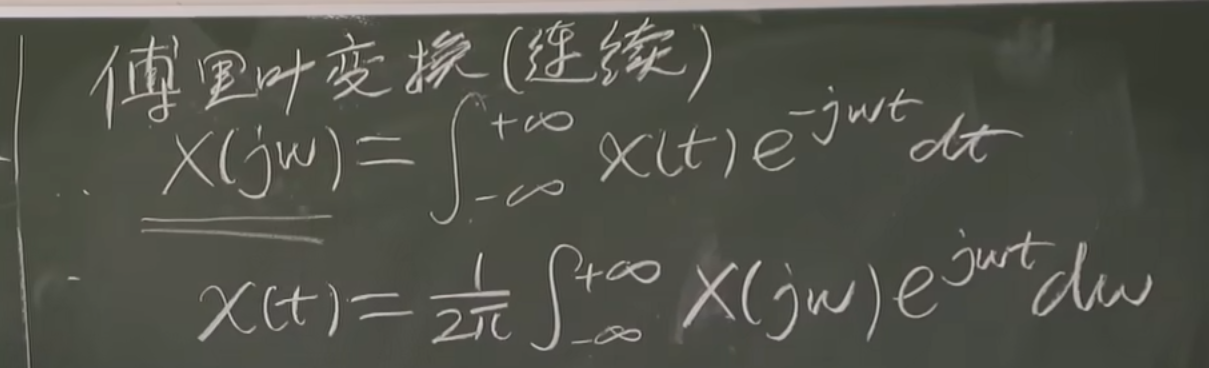 傅里叶变换(连续)
X(jw)=∫_{-∞}^{+∞} x(t)e^{-jwt}dt
x(t)=\frac{1}{2π}∫_{-∞}^{+∞} X(jw)e^{jwt}dw